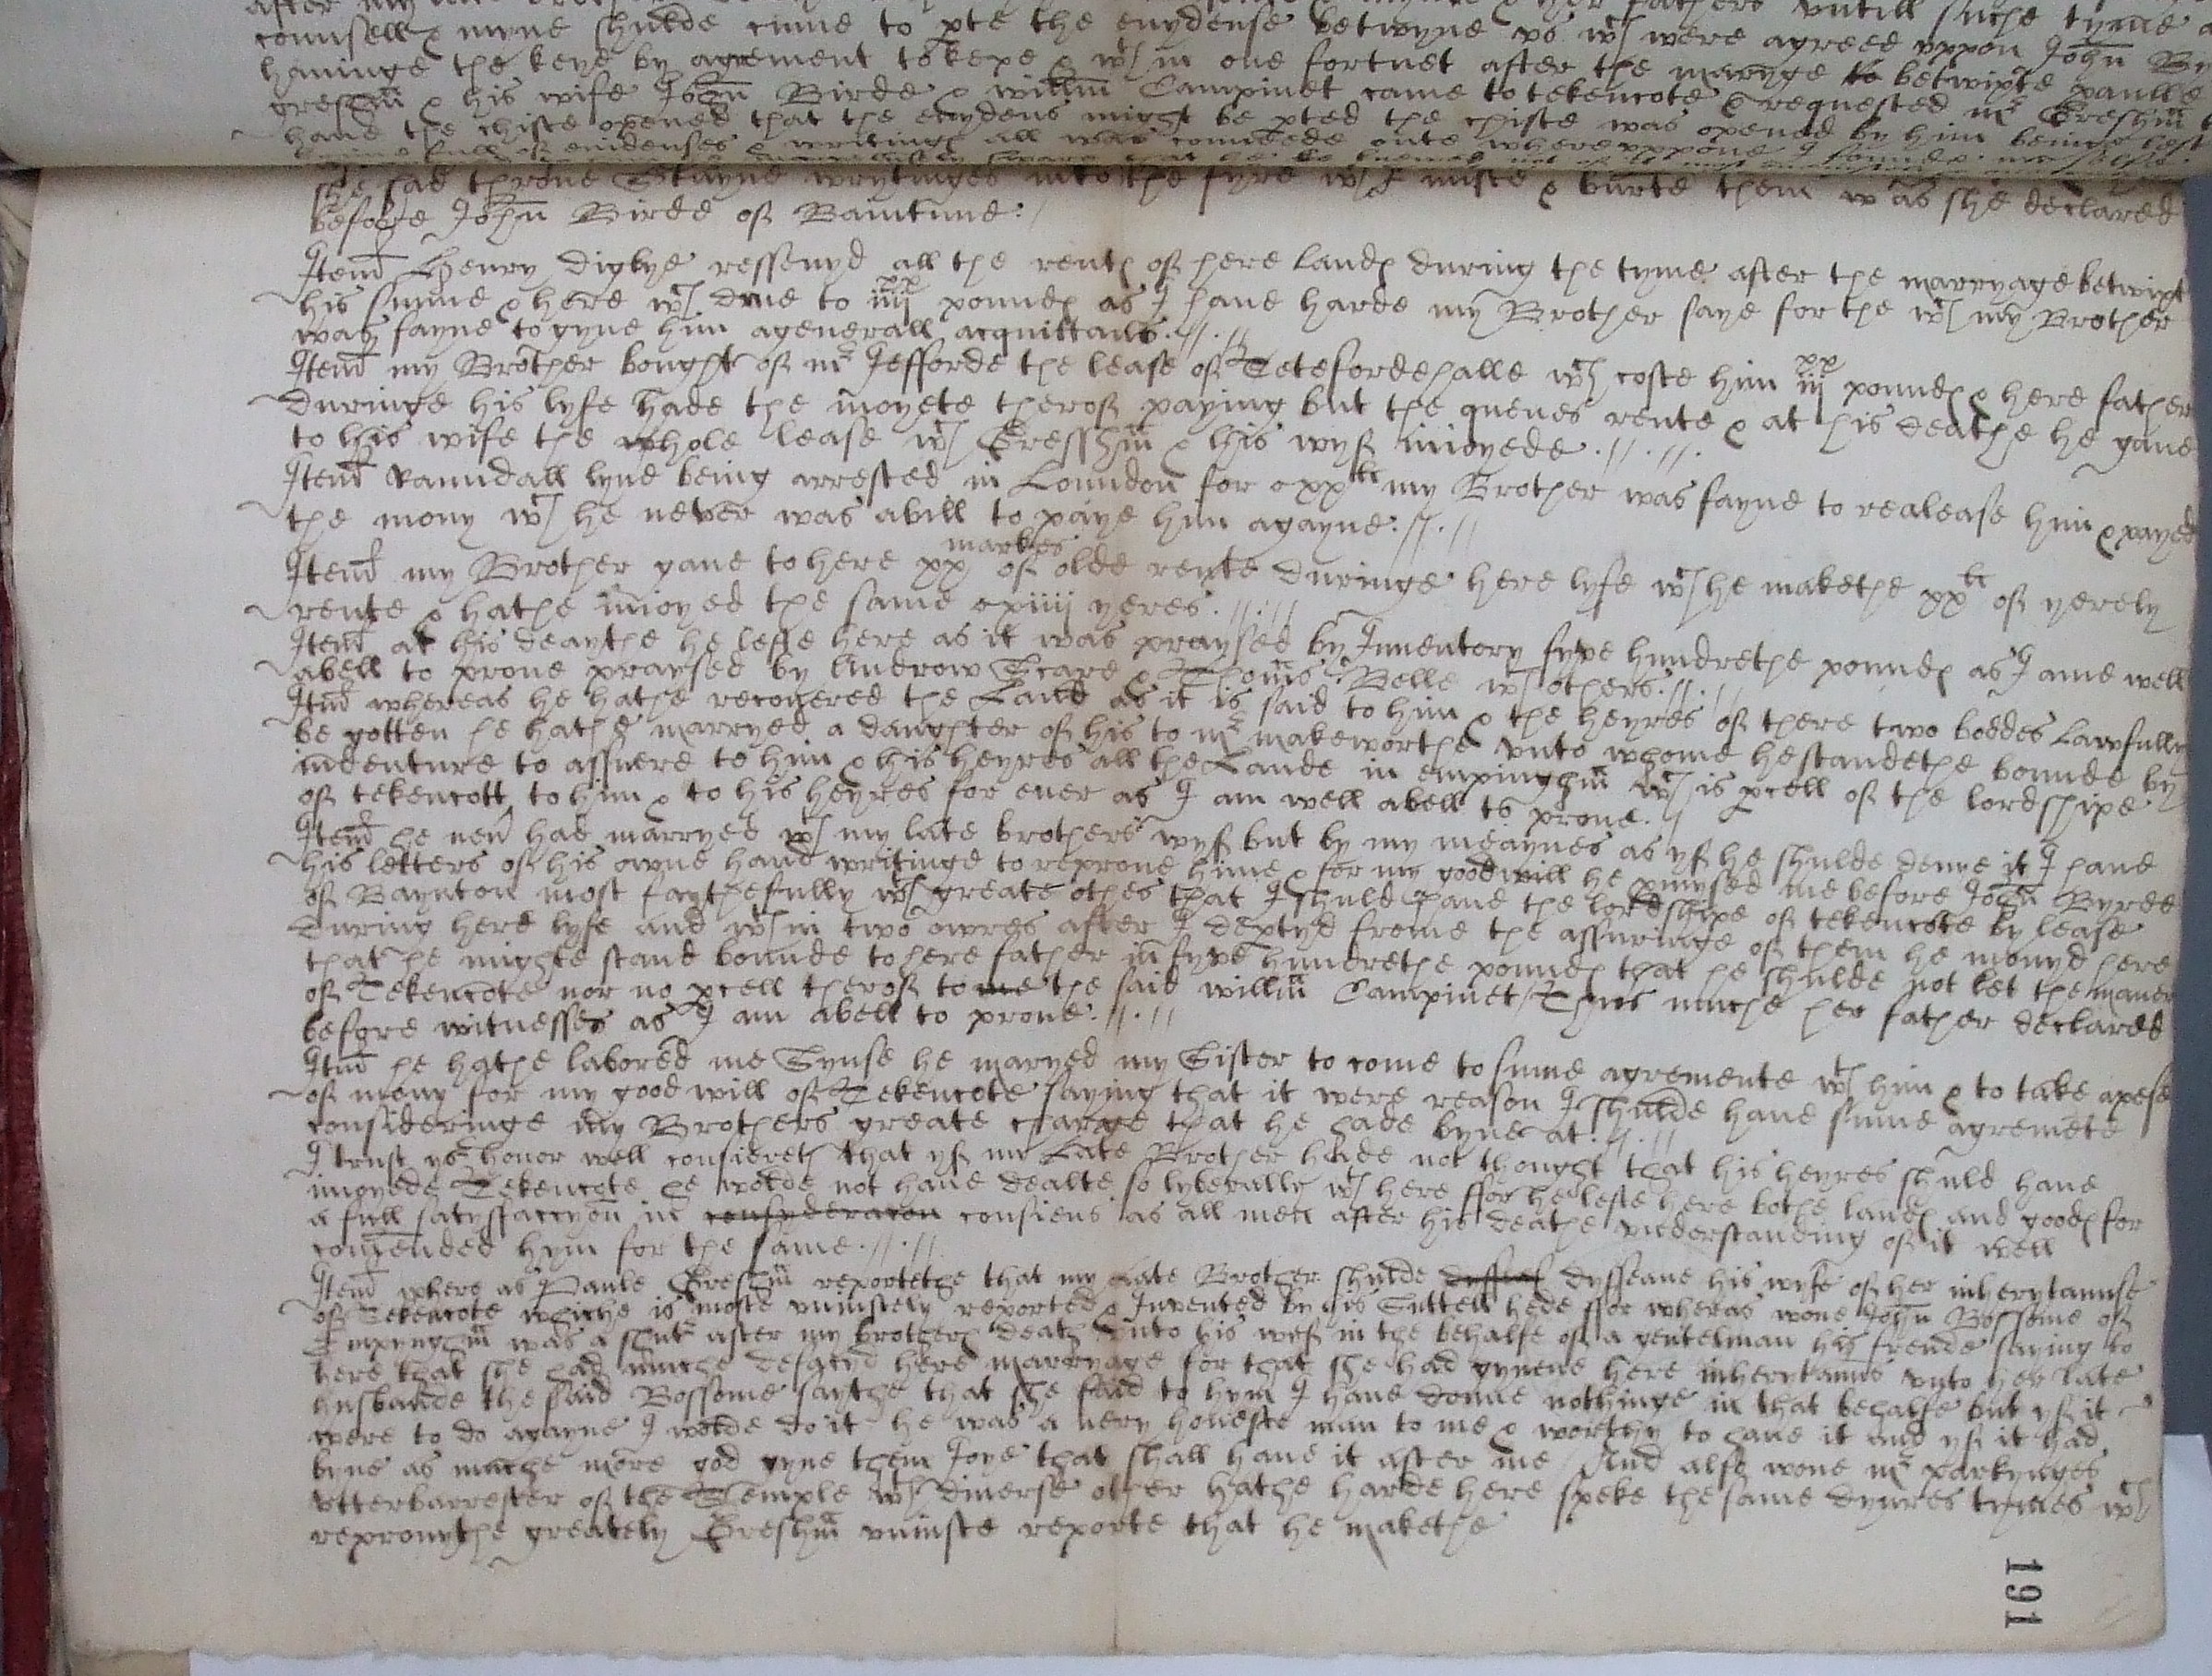 counsell & myne shulde cume to pte the euydense betwyne vs wch were agreed vppon John By
hauinge the keye by agrement to kepe & wth in one fortnet after the maryge to betwixte paulle
gresshm & his wife John Birde & willm Campinet came to tekencote & requested mr Gresshm to
haue the chiste opened that the euydens might be pted the chiste was opened by him beinge
full of euidenses & writings all was conueede oute wherevppone I founde
she had throne Stayne wrytinges into the fyre wth & burte them as she declared
before John Birde of Baintune:/
Itemd Henry digbye resseuyd all the rents of here lands during the tyme after the marryage betwixt
his sunne & here wch drue to iiijxx pounds as I haue harde my Brother saye for the wch my Brother
was fayne to gyue him a generall acquittails .//.//
Itemd my Brother bought of mr Jefforde the lease of Teteforde halle wch coste him iijxx pounds & here father
duringe his lyfe hade the moyete therof paying but the quenes rente & at his deathe he gaue
to his wife the whole lease wch Gresshm & his wyf inioyede .//.//.
Itemd Ranndall lyne being arrested in Lonndon for cxxli my Brother was fayne to realease him & payed
the mony wch he never was abill to paye him agayne://.//
Itemd my Brother gaue to here xx markes of olde rente duringe here lyfe wch he makethe xxli of yerely
rente & hathe inioyed the same cxiiij yeres .//.//
Itemd at his deaythe he lefte here as it was praysed by Inuentory fyve hundrethe pounds as I ame well
abell to proue praysed by Androw Scare & Thoms Belle wth others .//.//
Itmd whereas he hathe recouered the Land as it is said to him & the heyres of there two boddes Lawfully
be gotten he hathe marryed a daughter of his to mr makeworthe vnto whome he standethe bounde by
indenture to assuere to him & his heyres all the Lande in empinghm wch is pcell of the lordshipe
of tekencott to him & to his heyres for euer as I am well abell to proue .//
Itemd he neur had marryed wth my late brothers wyf but by my meaynes as yf he shulde denye it I haue
his letters of his owne hand writinge to reproue hime & for my good will he pmysed me before John Byrde
of Baynton most faythefully wth greate othes that I shuld haue the lordshipe of tekencote by lease
during here lyfe and wth in two owres after I deptyd frome the assuringe of them he mouyd here
that he mighte stand bounde to here father in fyve hundrethe pounds that he shulde not let the maner
of Tekencote nor no pcell therof to me the said willm Campinet / Thus muche her father declared
before witnesses as I am abell to proue .//.//
Itmd he hathe labored me Synse he maryed my Sister to come to sume agremente wth him & to take a pese
of mony for my good will of Tekencote saying that it were reason I shulde haue sume agremete
consideringe my Brothers greate charge that he hade byne at .//.//
I trust yor honor well considereth that yf my Late Brother hade not thought that his heyres shuld haue
inioyede Tekencote he wolde not haue dealte so lyberally wth here ffor he lefte here bothe lands and goods for
a full satysfaccyon in consyderacon consiens as all men after his deathe vnderstanding of it well
comended hym for the same .//.//
Itemd where as Paule Greshm reportethe that my late Brother shulde dysseaue his wyfe of her inherytannse
of Tekencote whiche is moste vniustely reported & Invented by his Suttell hede ffor wheras wone John Bossome of
Empynghm was a shutr after my brothers death vnto his wyf in the behalfe of a gentelman his frende saying to
here that she had muche desgcyd here marryage for that she had gyuene here inherytanns vnto her late
husbande the said Bossome saythe that she said to hym I haue donne nothinge in that behalfe but yf it
were to do agayne I wolde do it he was a uery honeste man to me & worthy to haue it and yf it had
byne as muche more god gyue them Joye that shall haue it after me / And also wone mr parkynges
vtterbarrester of the Temple wth diuerse other hathe harde here speke the same dyures tymes wch
reprouythe greately Greshm vniuste reporte that he makethe
191